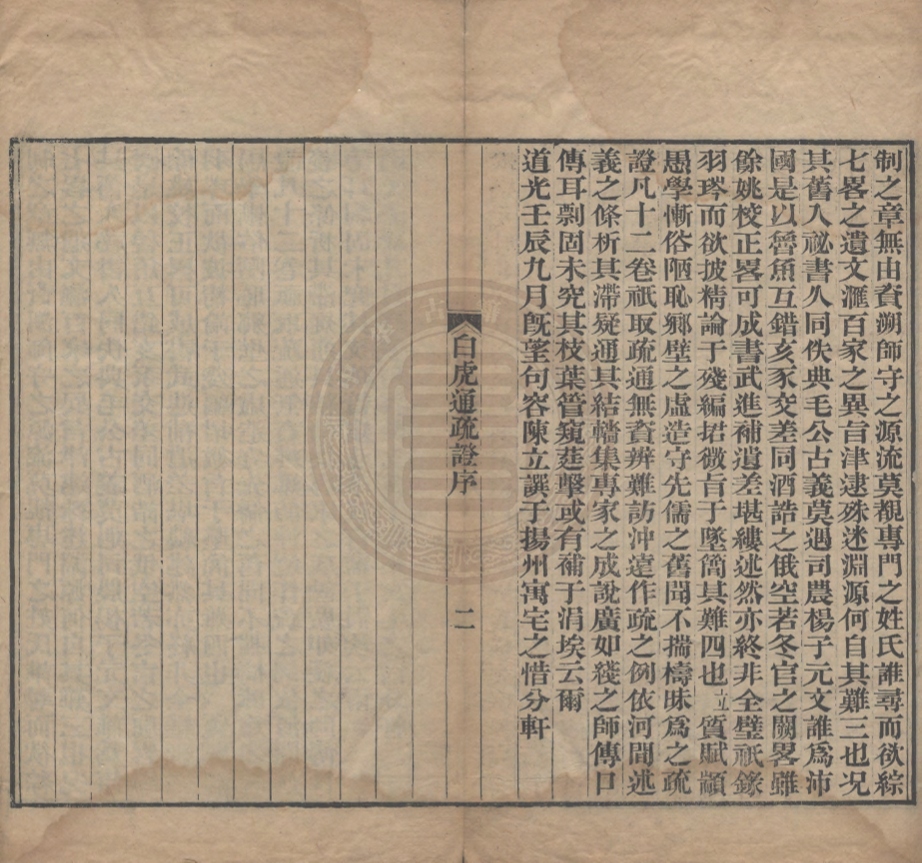 制之章無由資溯師守之源流莫覩專門之姓氏誰尋而欲綜
七畧之遺文滙百家之異旨津逮殊迷淵源何自其難三也况
其舊入祕書久同佚典毛公古義莫遇司農楊子元文誰爲沛
國是以魯魚互錯亥豕交差同酒誥之俄空若冬官之闕畧雖
餘姚校正畧可成書武進補遺差堪縷述然亦終非全璧祇錄
羽琌而欲披精論于殘編掂微旨于墜簡其難四也立質賦顓
愚學慚俗陋恥鄉壁之虛造守先儒之舊聞不揣檮昧爲之疏
證凡十二卷祇取疏通無資辨難訪沖遠作疏之例依河間述
義之條析其滯疑通其結轖集專家之成說廣如綫之師傳口
傳耳剽固未究其枝葉管窺莛擊或有補于涓埃云爾
道光壬辰九月旣望句容陳立譔于揚州寓宅之惜分軒
白虎通疏證序
二